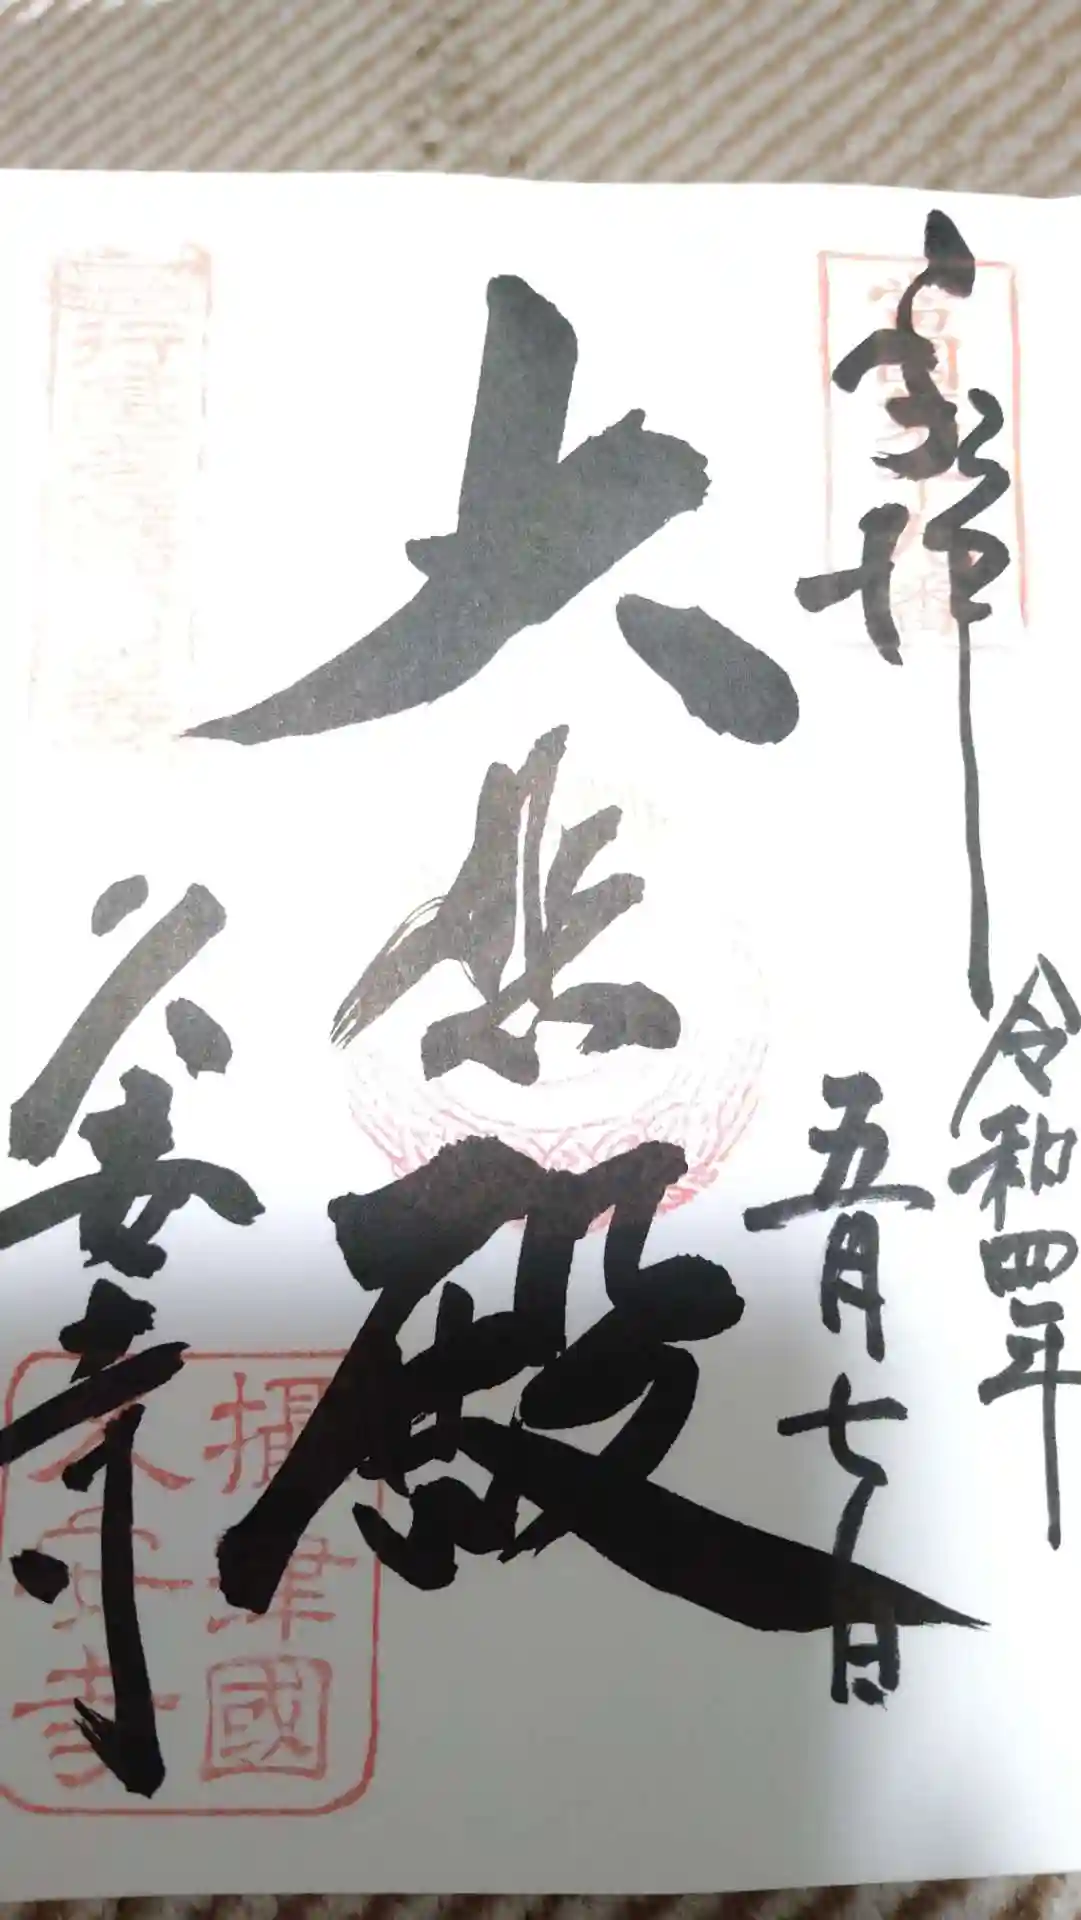 奉拝
令和四年
五月七日
大悲殿
久安寺
攝津國
久安寺